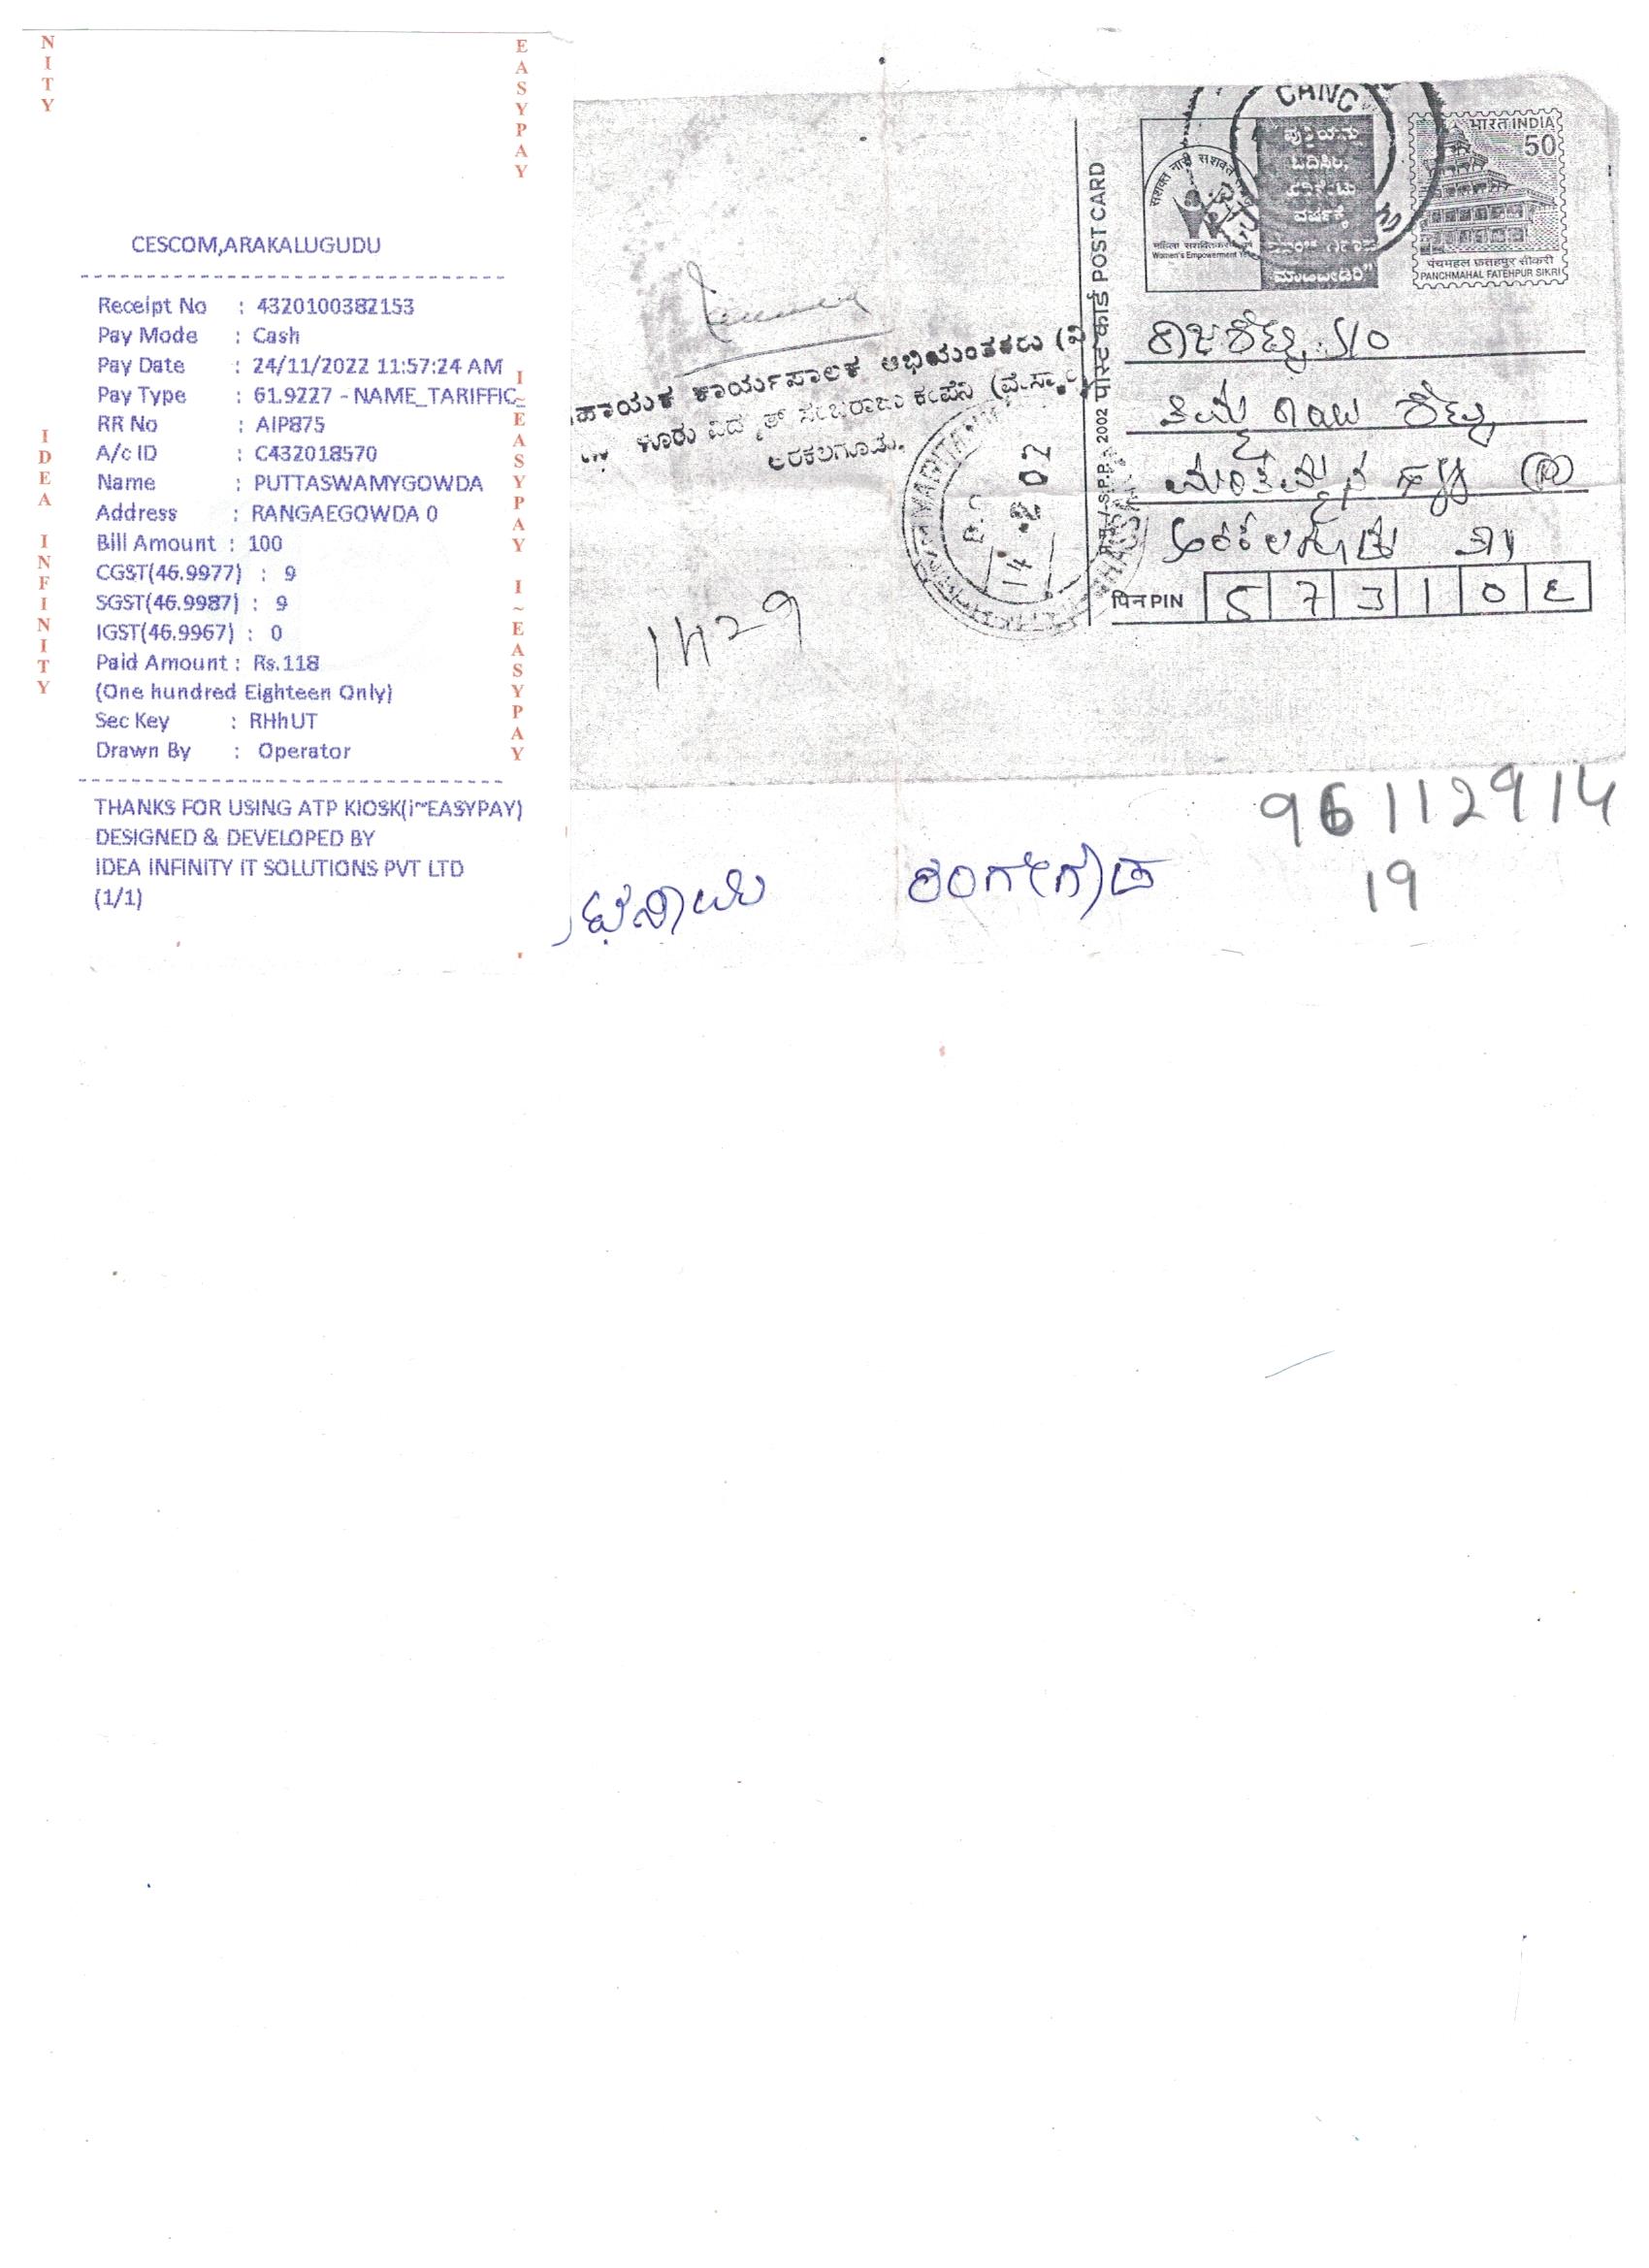 NITY
IDEA INFINITY
EASYPAY
I~EASYPAY
I~EASYPAY
CESCOM,ARAKALUGUDU
Receipt No : 4320100382153
Pay Mode : Cash
Pay Date : 24/11/2022 11:57:24 AM
Pay Type : 61.9227 - NAME_TARIFFIC_
RR No : AIP875
A/c ID : C432018570
Name : PUTTASWAMYGOWDA
Address : RANGAEGOWDA 0
Bill Amount : 100
CGST(46.9977) : 9
SGST(46.9987) : 9
IGST(46.9967) : 0
Paid Amount : Rs.118
(One hundred Eighteen Only)
Sec Key : RHhUT
Drawn By : Operator
THANKS FOR USING ATP KIOSK(i~EASYPAY)
DESIGNED & DEVELOPED BY
IDEA INFINITY IT SOLUTIONS PVT LTD
(1/1)
ಕಾರ್ಯಪಾಲಕ ಅಭಿಯಂತರರು
ಕಂಪನಿ
ಅರಕಲಗೂಡು.
1429
14 .2 02
2002 पोस्ट कार्ड POST CARD
CANC
सशक्त नारी सशक्त
महिला सशक्तिकरण वर्ष
Women's Empowerment
ಓದಿಸಿರಿ,
ವರ್ಷಕ್ಕೆ
ಮಾಡಬೇಡಿರಿ"
भारत INDIA
50
पंचमहल फ़तहपुर सीकरी
PANCHMAHAL FATEHPUR SIKRI
ರಾಜಶೆಟ್ಟಿ S/o
ಶೆಟ್ಟಿ
ಅರಕಲಗೂಡು ತಾ
पिन PIN 573102
96112914
19
ರಂಗೇಗೌಡ